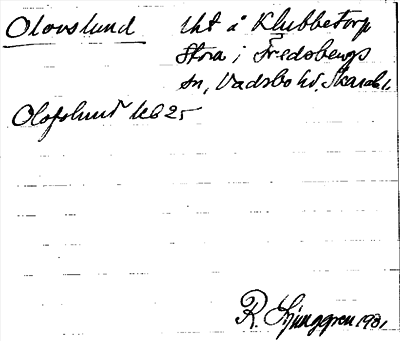 Olovslund
Uht å Klubbetorp
Stora i Fredsbergs
sn, Vadsbo hd. Skarab. l.
Olofslund Us 25
R. Ljunggren 1931